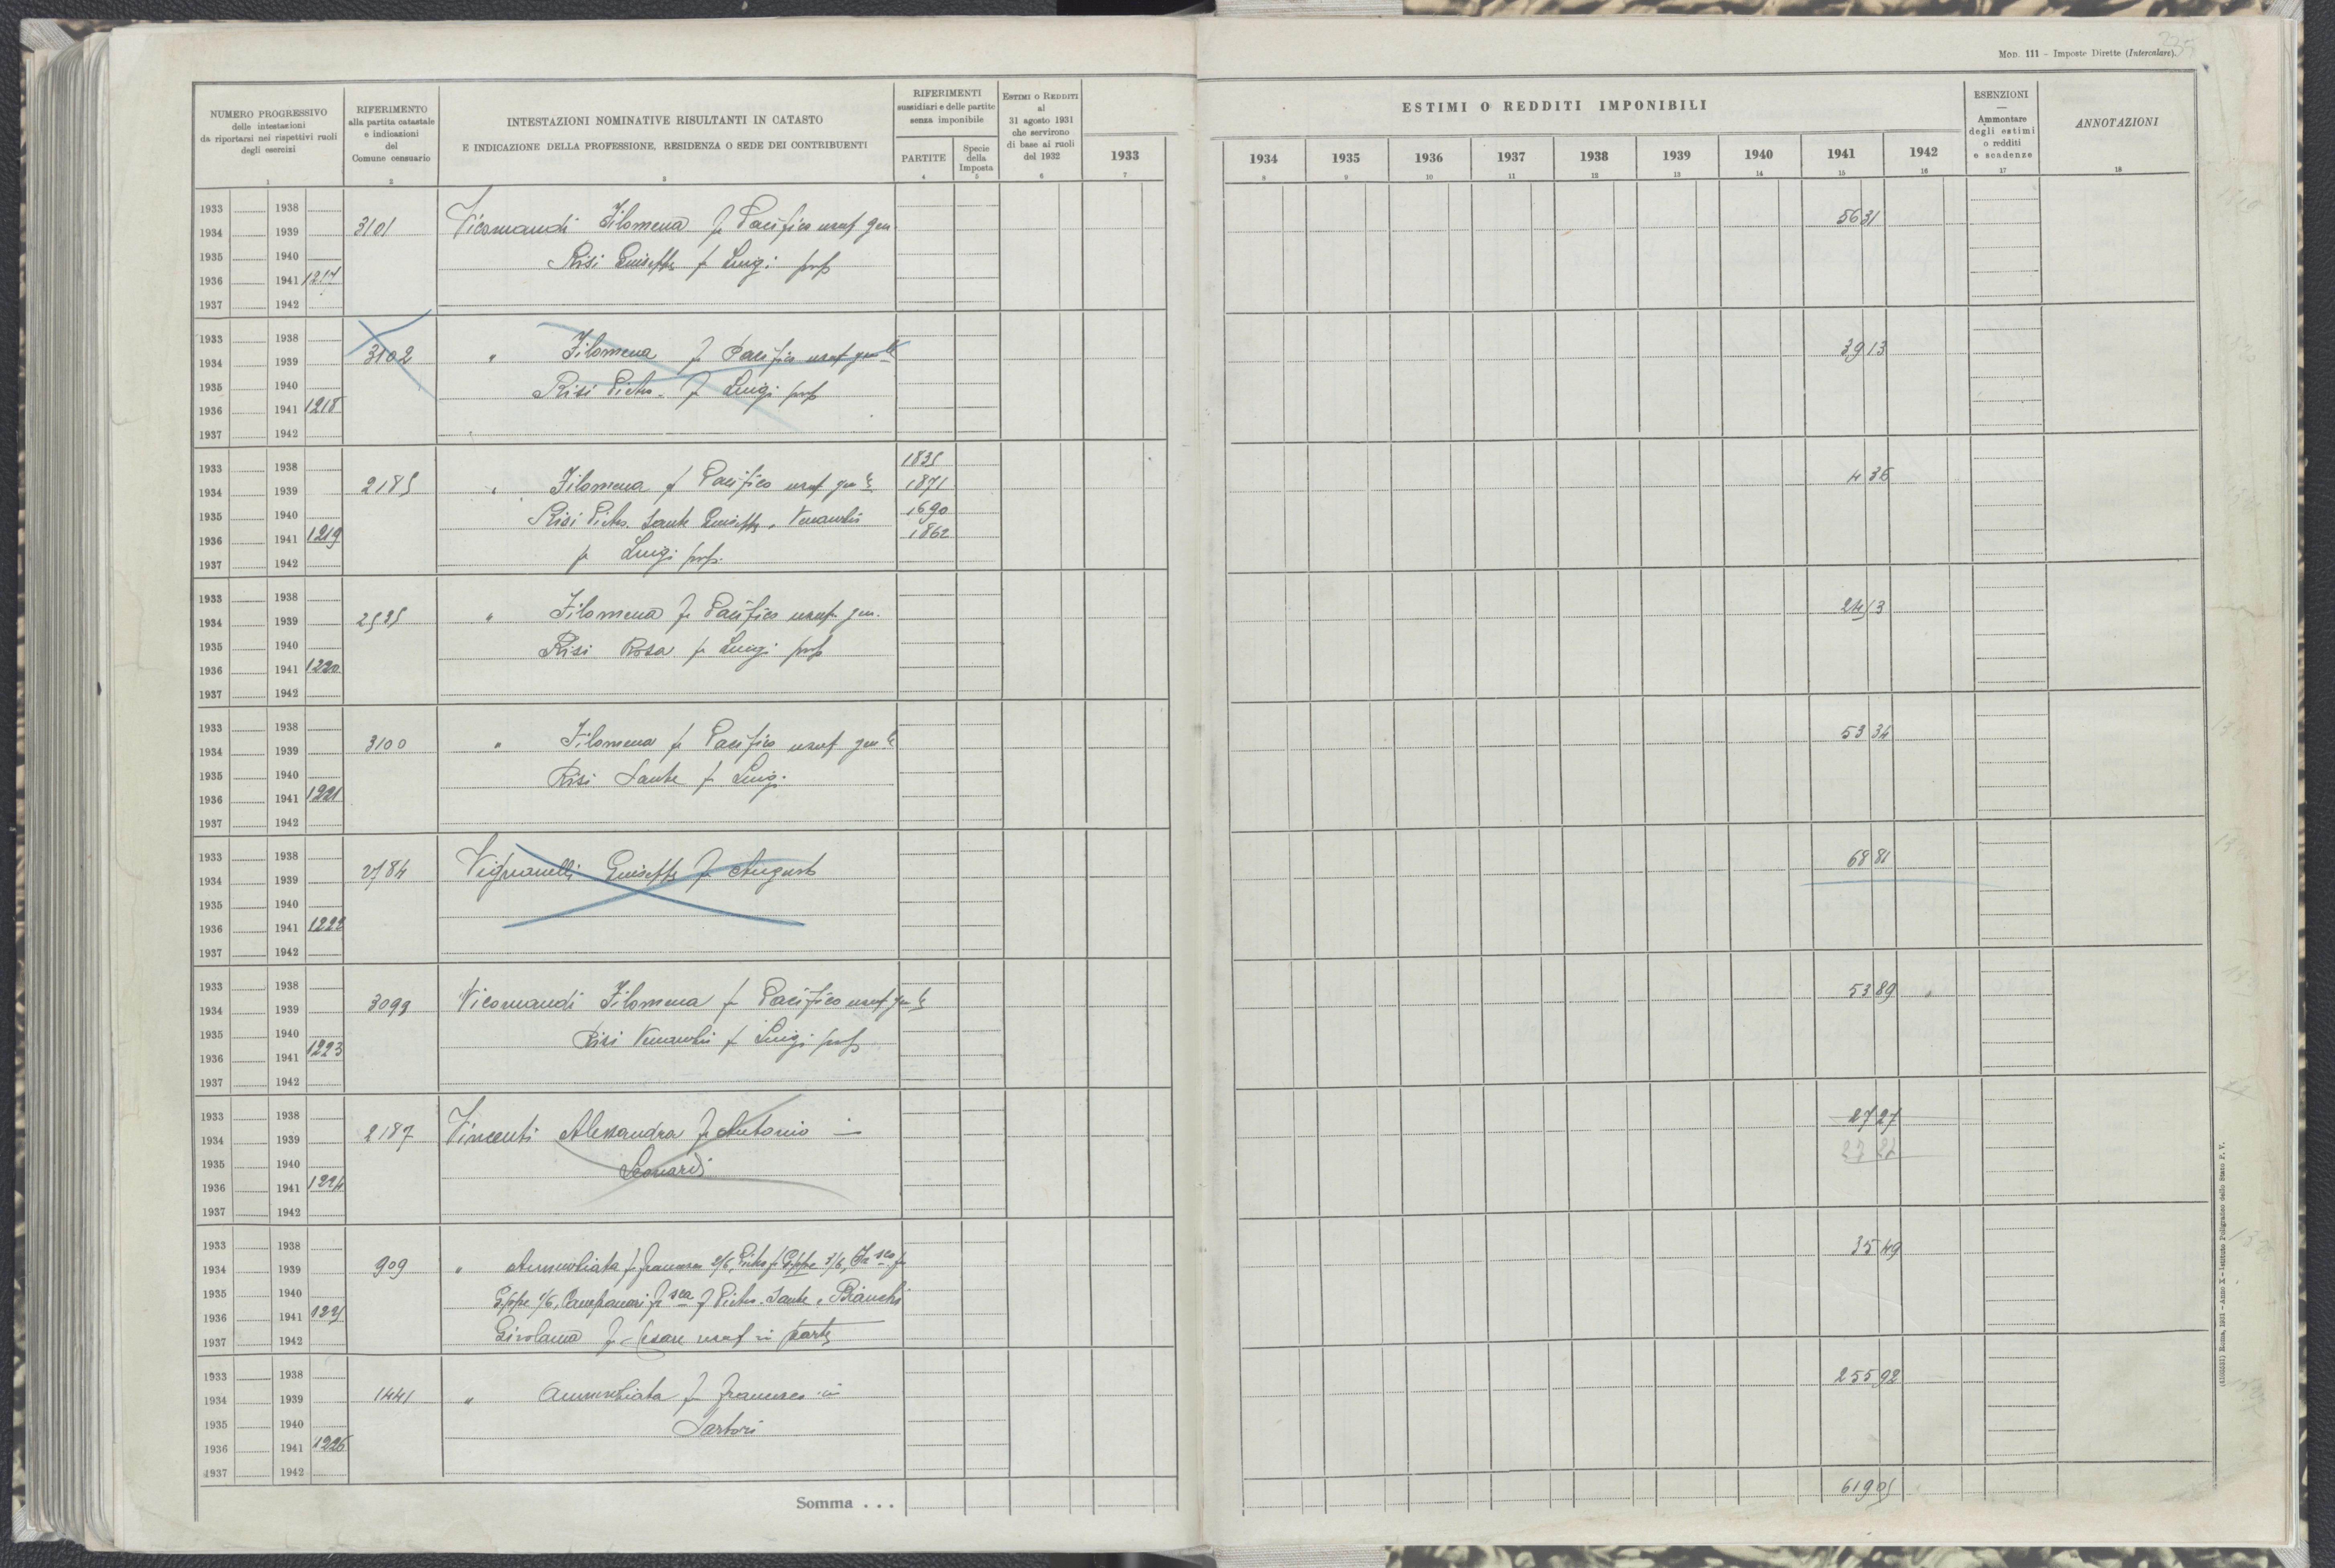 Mod. 111 – Imposte Dirette (Intercalare).
NUMERO PROGRESSIVO
delle intestazioni
da riportarsi nei rispettivi ruoli
degli esercizi
1
RIFERIMENTO
alla partita catastale
e indicazioni
del
Comune censuario
2
INTESTAZIONI NOMINATIVE RISULTANTI IN CATASTO
E INDICAZIONE DELLA PROFESSIONE, RESIDENZA O SEDE DEI CONTRIBUENTI
3
RIFERIMENTI
sussidiari e delle partite
senza imponibile
PARTITE
4
Specie
della
Imposta
5
Estimi o Redditi
al
31 agosto 1931
che servirono
di base ai ruoli
del 1932
6
ESTIMI O REDDITI IMPONIBILI
1933 1934 1935 1936 1937 1938 1939 1940 1941 1942
7 8 9 10 11 12 13 14 15 16
ESENZIONI
—
Ammontare
degli estimi
o redditi
e scadenze
17
ANNOTAZIONI
18
1933 1938
1934 1939 3101 Vicomandi Filomena f Pacifico usuf gen. 56 31
1935 1940 Risi Giuseppe f Luigi prop
1936 1941 1217
1937 1942
1933 1938
1934 1939 3102 " Filomena f Pacifico usuf gen le 39 13
1935 1940 Risi Pietro f Luigi prop
1936 1941 1218
1937 1942
1933 1938 1835
1934 1939 2185 " Filomena f Pacifico usuf gen le 1871 4 36
1935 1940 Risi Pietro Sante Giuseppe e Venanzio 1690
1936 1941 1219 1862
1937 1942 f Luigi prop.
1933 1938
1934 1939 2535 " Filomena f Pacifico usuf. gen. 24 13
1935 1940 Risi Rosa f Luigi prop
1936 1941 1220
1937 1942
1933 1938
1934 1939 3100 " Filomena f Pacifico usuf gen le 53 34
1935 1940 Risi Sante f Luigi
1936 1941 1221
1937 1942
1933 1938
1934 1939 2784 Vignanelli Giuseppe f Augusto 68 81
1935 1940
1936 1941 1222
1937 1942
1933 1938
1934 1939 3099 Vicomandi Filomena f Pacifico usuf gen le 53 89
1935 1940 Risi Venanzio f Luigi prop
1936 1941 1223
1937 1942
1933 1938
1934 1939 2187 Vincenti Alessandra f Antonio in 27 27
1935 1940 Leonardi
1936 1941 1224
1937 1942
1933 1938
1934 1939 909 " Annunziata f Francesco 2/6, Pietro f Gppe 3/6, Fr sco f 35 49
1935 1940 Gppe 1/6, Campanari f sca f Pietro Sante e Bianchi
1936 1941 1225
1937 1942 Girolama f Cesare usuf in parte
1933 1938
1934 1939 1441 " Annunziata f Francesco in 255 92
1935 1940 Sartori
1936 1941 1226
1937 1942
Somma . . . 619 05
(4103531) Roma, 1931 – Anno X – Istituto Poligrafico dello Stato P. V.